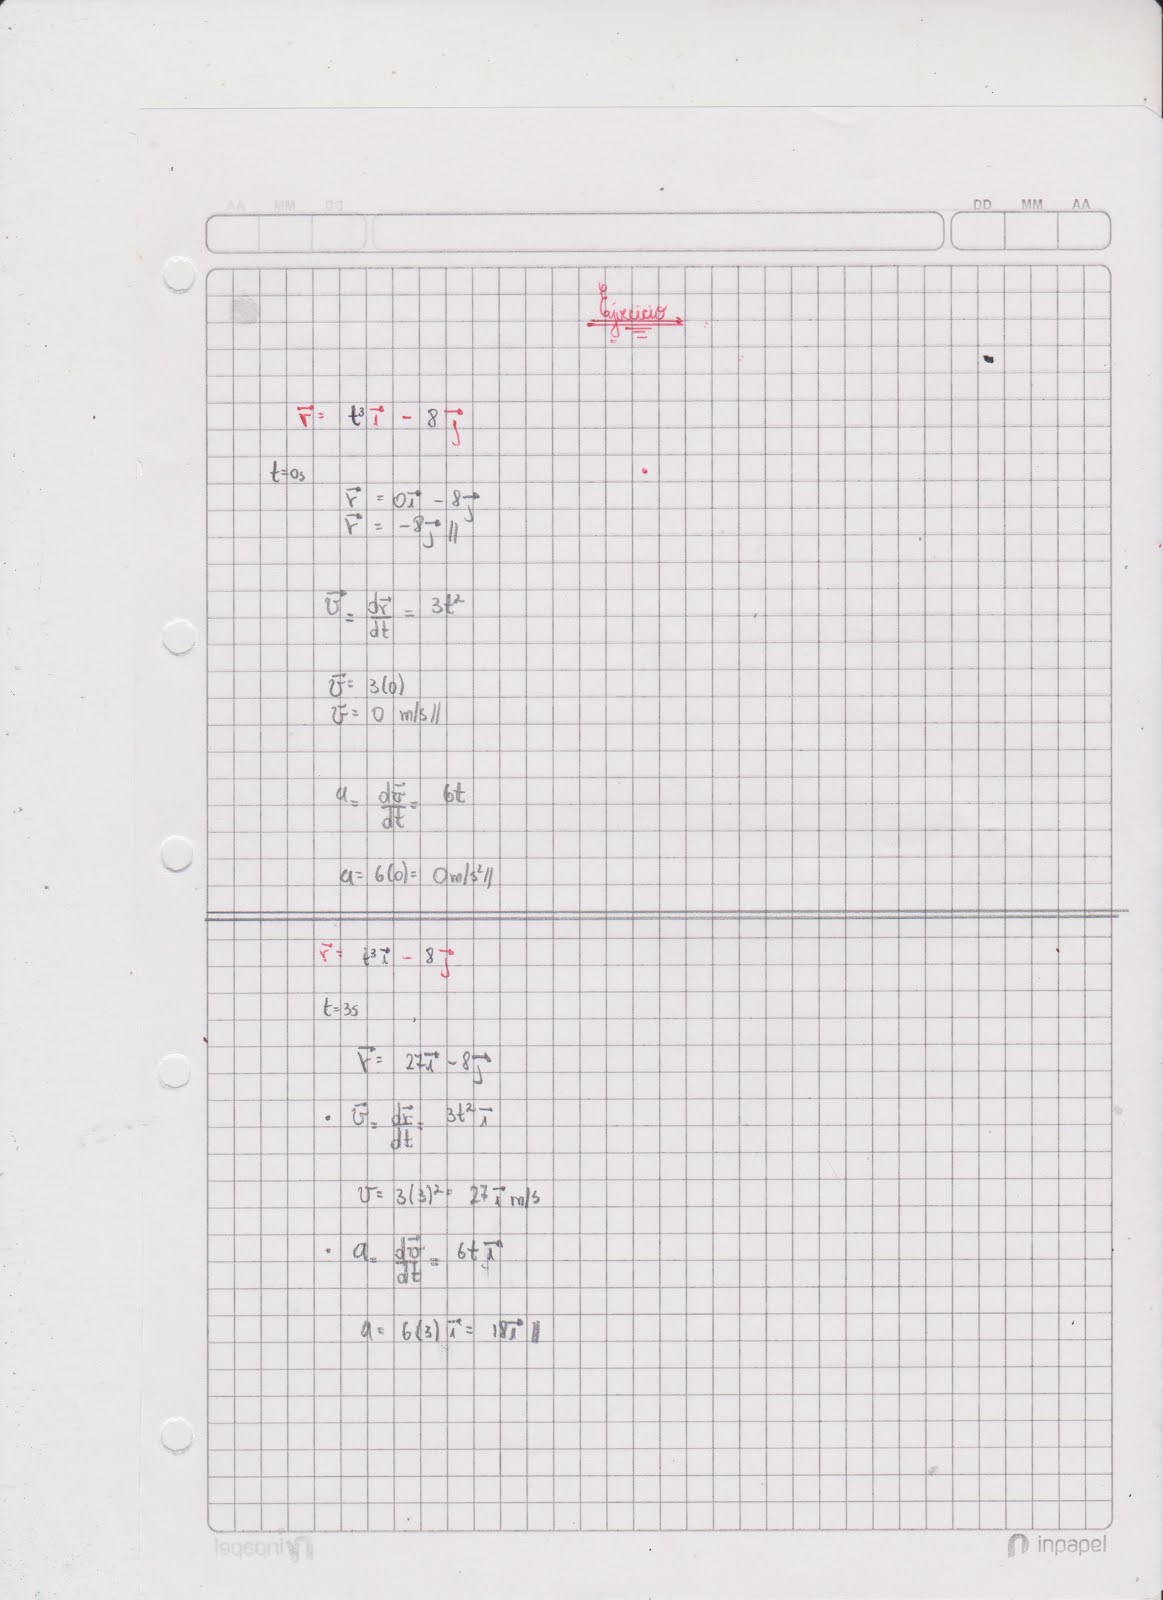 DD MM AA
Ejercicio
r⃗ = t³ i⃗ - 8 j⃗
t=0s
r⃗ = 0i⃗ - 8j⃗
r⃗ = -8j⃗ //
v⃗ = dr⃗/dt = 3t²
v⃗ = 3(0)
v⃗ = 0 m/s //
a = dv⃗/dt = 6t
a = 6(0) = 0 m/s² //
r⃗ = t³ i⃗ - 8 j⃗
t=3s
r⃗ = 27i⃗ - 8j⃗
• v⃗ = dr⃗/dt = 3t² i⃗
v = 3(3)² = 27 i⃗ m/s
• a = dv⃗/dt = 6t i⃗
a = 6(3) i⃗ = 18i⃗ //
inpapel